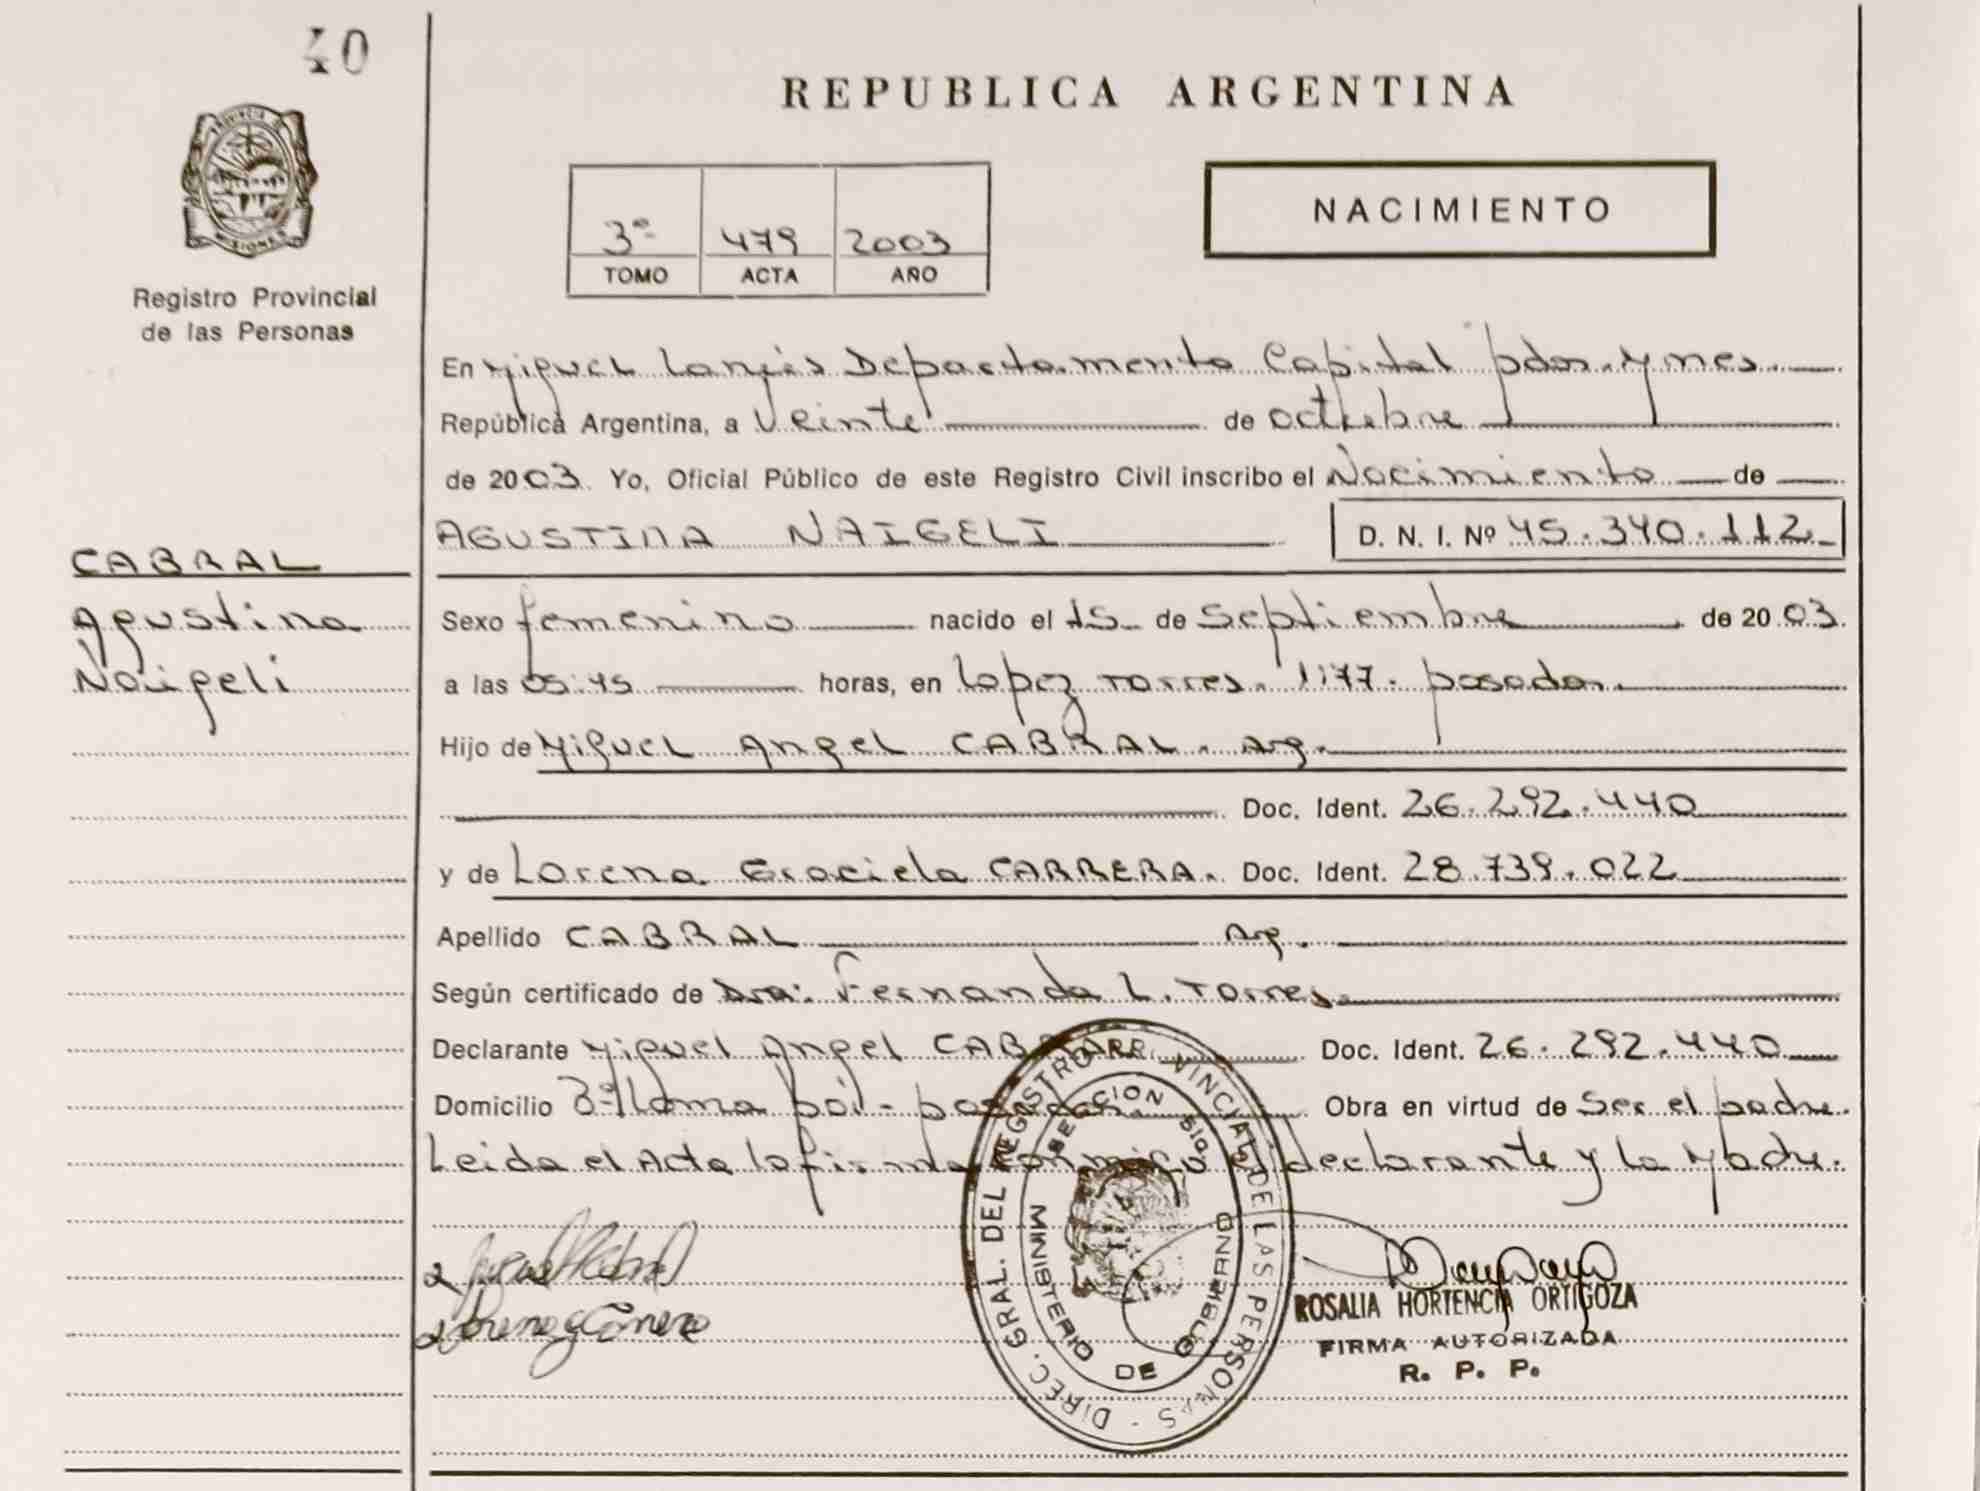 40
REPUBLICA ARGENTINA
PROVINCIA DE
MISIONES
Registro Provincial
de las Personas
NACIMIENTO
3º 479 2003
TOMO ACTA AÑO
En Miguel Lanús Departamento Capital pdas. Mnes.
República Argentina, a Veinte de octubre
de 2003. Yo, Oficial Público de este Registro Civil inscribo el Nacimiento de
AGUSTINA NAIGELI D. N. I. Nº 45.340.112
CABRAL
Agustina
Naigeli
Sexo femenino nacido el 15 de Septiembre de 2003.
a las 05:45 horas, en Lopez Torres. 1177. posadas.
Hijo de Miguel Angel CABRAL. Arg.
Doc. Ident. 26.292.440
y de Lorena Graciela CARRERA. Doc. Ident. 28.739.022
Apellido CABRAL Arg.
Según certificado de Dra: Fernanda L. Torres
Declarante Miguel Angel CABRAL Doc. Ident. 26.292.440
Domicilio posadas. Obra en virtud de Ser el padre.
Leida el Acta la firma conmigo el declarante y la Madre.
DIREC. GRAL. DEL REGISTRO PROVINCIAL DE LAS PERSONAS
MINISTERIO DE GOBIERNO
ROSALIA HORTENCIA ORTIGOZA
FIRMA AUTORIZADA
R. P. P.